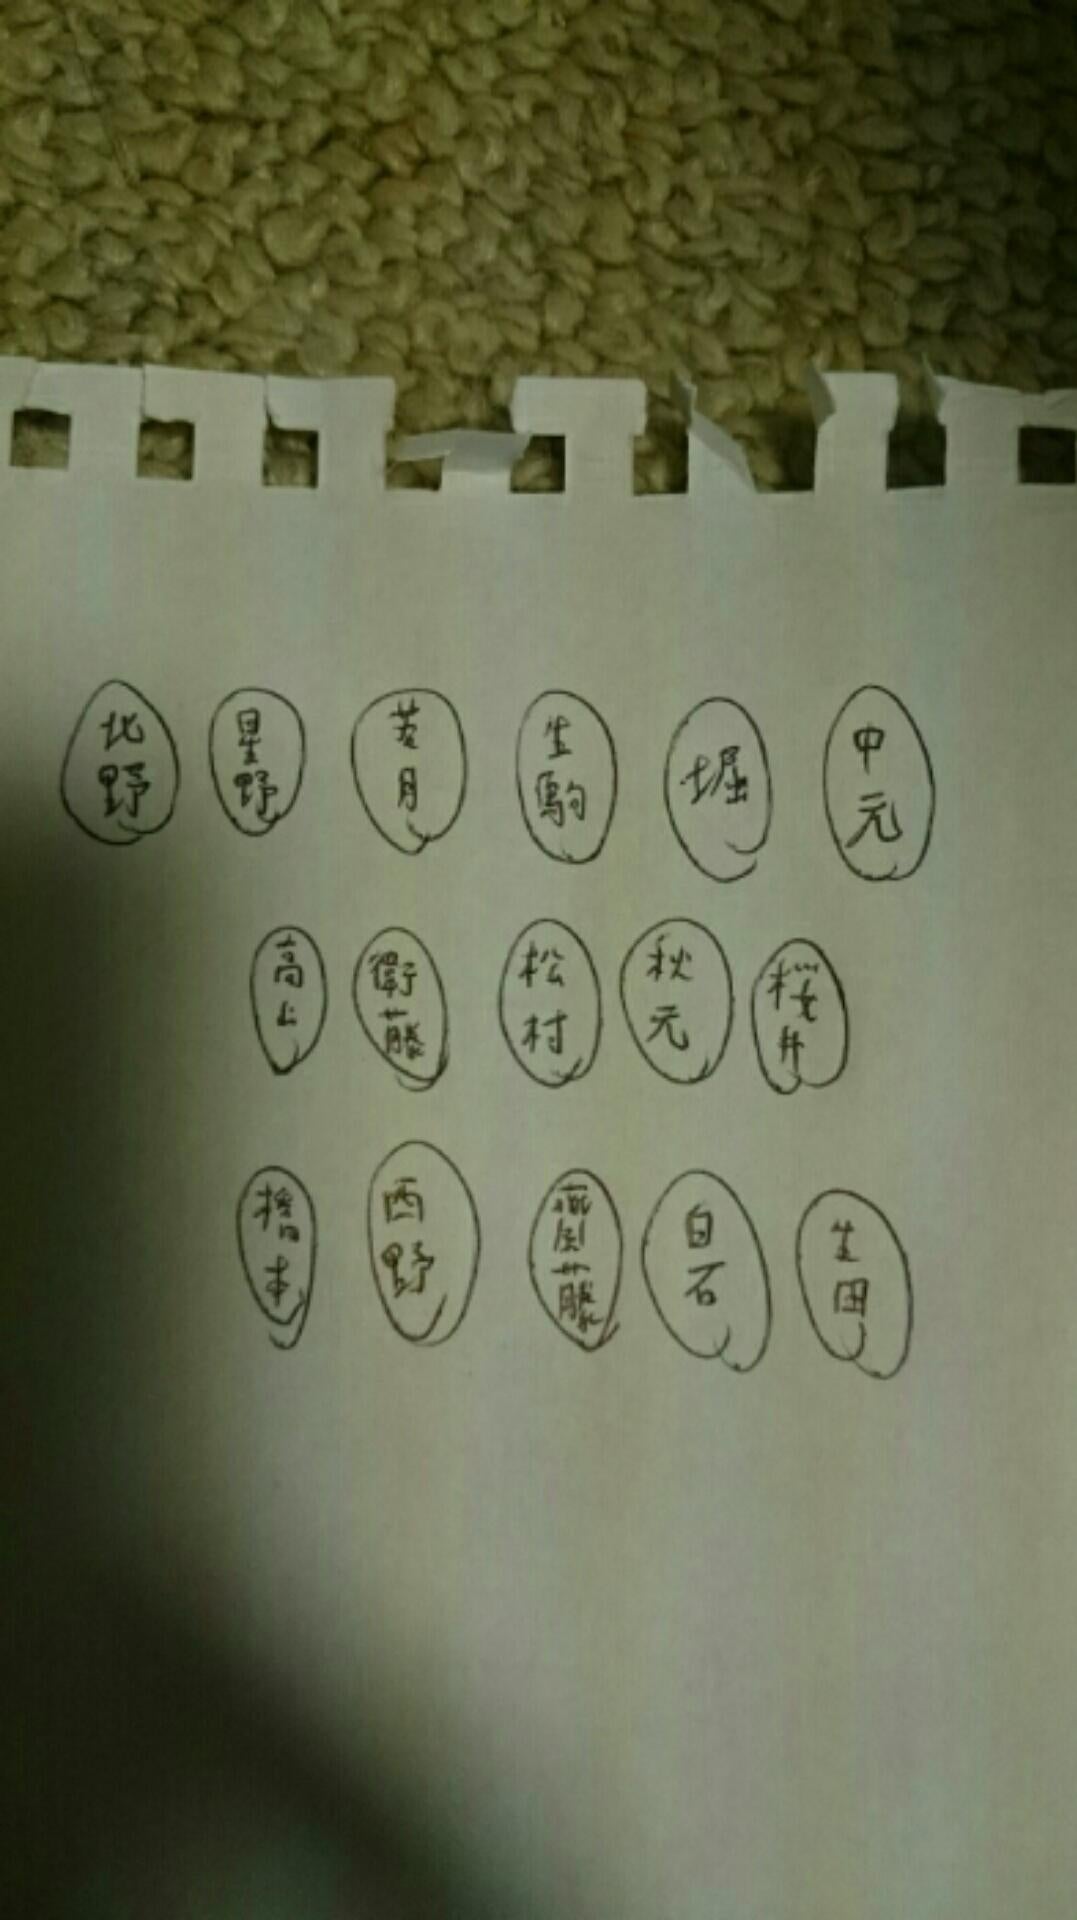 北野 星野 若月 生駒 堀 中元
高山 衛藤 松村 秋元 桜井
橋本 西野 齋藤 白石 生田